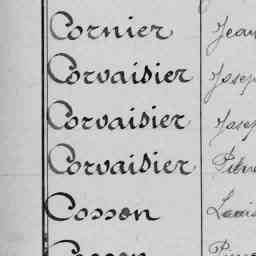 Cornier Jean
Corvaisier Josep
Corvaisier Josep
Corvaisier
Cosson Louis
Cosson